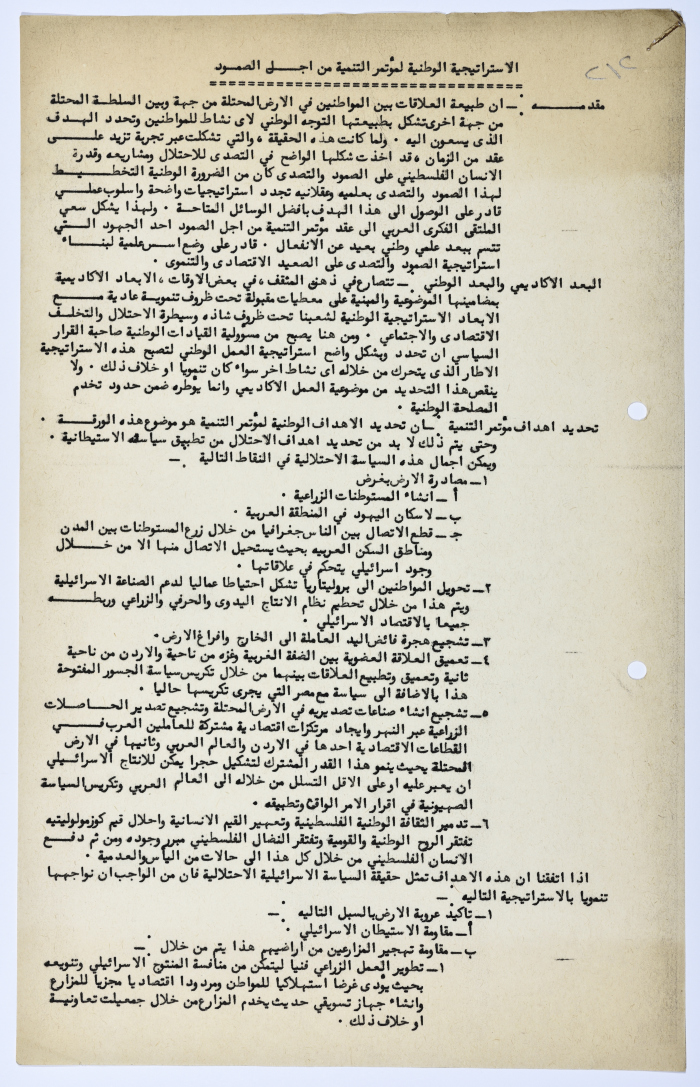 الاستراتيجية الوطنية لمؤتمر التنمية من اجل الصمود
مقدمة :ـ ان طبيعة العلاقات بين المواطنين في الارض المحتلة من جهة وبين السلطة المحتلة
من جهة اخرى تشكل بطبيعتها التوجه الوطني لاى نشاط للمواطنين وتحدد الهدف
الذى يسعون اليه . ولما كانت هذه الحقيقة ، والتي تشكلت عبر تجربة تزيد على
عقد من الزمان ، قد اخذت شكلها الواضح في التصدى للاحتلال ومشاريعه وقدرة
الانسان الفلسطيني على الصمود والتصدى كان من الضرورة الوطنية التخطيط
لهذا الصمود والتصدى بعلميه وعقلانيه تجدد استراتيجيات واضحة واسلوب عملي
قادر على الوصول الى هذا الهدف بافضل الوسائل المتاحة . ولهذا يشكل سعي
الملتقى الفكرى العربي الى عقد مؤتمر التنمية من اجل الصمود احد الجهود التي
تتسم ببعد علمي وطني بعيد عن الانفعال . قادر على وضع اسس علمية لبناء
استراتيجية الصمود والتصدى على الصعيد الاقتصادى والتنموى .
البعد الاكاديمي والبعد الوطني :ـ تتصارع في ذهن المثقف ، في بعض الاوقات ، الابعاد الاكاديمية
بمضامينها الموضوعية والمبنية على معطيات مقبولة تحت ظروف تنموية عادية مع
الابعاد الاستراتيجية الوطنية لشعبنا تحت ظروف شاذه وسيطرة الاحتلال والتخلف
الاقتصادى والاجتماعي . ومن هنا يصبح من مسوولية القيادات الوطنية صاحبة القرار
السياسي ان تحدد وبشكل واضح استراتيجية العمل الوطني لتصبح هذه الاستراتيجية
الاطار الذى يتحرك من خلاله اى نشاط اخر سواء كان تنمويا او خلاف ذلك . ولا
ينقص هذا التحديد من موضوعية العمل الاكاديمي وانما يوطره ضمن حدود تخدم
المصلحة الوطنية .
تحديد اهداف مؤتمر التنمية :ـ ان تحديد الاهداف الوطنية لمؤتمر التنمية هو موضوع هذه الورقة .
وحتى يتم ذلك لا بد من تحديد اهداف الاحتلال من تطبيق سياسته الاستيطانية .
ويمكن اجمال هذه السياسة الاحتلالية في النقاط التالية :ـ
١ـ مصادرة الارض بغرض
أ ـ انشاء المستوطنات الزراعية .
ب ـ لاسكان اليهود في المنطقة العربية .
جـ ـ قطع الاتصال بين الناس جغرافيا من خلال زرع المستوطنات بين المدن
ومناطق السكن العربيه بحيث يستحيل الاتصال منها الا من خلال
وجود اسرائيلي يتحكم في علاقاتها .
٢ـ تحويل المواطنين الى بروليتاريا تشكل احتياطا عماليا لدعم الصناعة الاسرائيلية
ويتم هذا من خلال تحطيم نظام الانتاج اليدوى والحرفي والزراعي وربطه
جميعا بالاقتصاد الاسرائيلي .
٣ـ تشجيع هجرة فائض اليد العاملة الى الخارج وافراغ الارض.
٤ـ تعميق العلاقة العضوية بين الضفة الغربية وغزه من ناحية والاردن من ناحية
ثانية وتعميق وتطبيع العلاقات بينهما من خلال تكريس سياسة الجسور المفتوحة
هذا بالاضافة الى سياسة مع مصر التي يجرى تكريسها حاليا .
٥ـ تشجيع انشاء صناعات تصديريه في الارض المحتلة وتشجيع تصدير الحاصلات
الزراعية عبر النهر وايجاد مرتكزات اقتصادية مشتركة للعاملين العرب في
القطاعات الاقتصادية احدها في الاردن والعالم العربي وثانيها في الارض
المحتلة بحيث ينمو هذا القدر المشترك لتشكيل حجرا يمكن للانتاج الاسرائيلي
ان يعبر عليه او على الاقل التسلل من خلاله الى العالم العربي وتكريس السياسة
الصهيونية في اقرار الامر الواقع وتطبيقه .
٦ـ تدمير الثقافة الوطنية الفلسطينية وتعهير القيم الانسانية واحلال قيم كوزمولوليتيه
تفتقر الروح الوطنية والقومية وتفتقر النضال الفلسطيني مبرر وجوده ومن ثم دفع
الانسان الفلسطيني من خلال كل هذا الى حالات من اليأس والعدمية .
اذا اتفقنا ان هذه الاهداف تمثل حقيقة السياسة الاسرائيلية الاحتلالية فان من الواجب ان نواجهها
تنمويا بالاستراتيجية التاليه :ـ
١ـ تاكيد عروبة الارض بالسبل التاليه :ـ
أـ مقاومة الاستيطان الاسرائيلي .
ب ـ مقاومة تهجير المزارعين من اراضيهم هذا يتم من خلال :ـ
١ـ تطوير العمل الزراعي فنيا ليتمكن من منافسة المنتوج الاسرائيلي وتنويعه
بحيث يؤدى غرضا استهلاكيا للمواطن ومردودا اقتصاديا مجزيا للمزارع
وانشاء جهاز تسويقي حديث يخدم المزارع من خلال جمعيلت تعاونية
او خلاف ذلك .